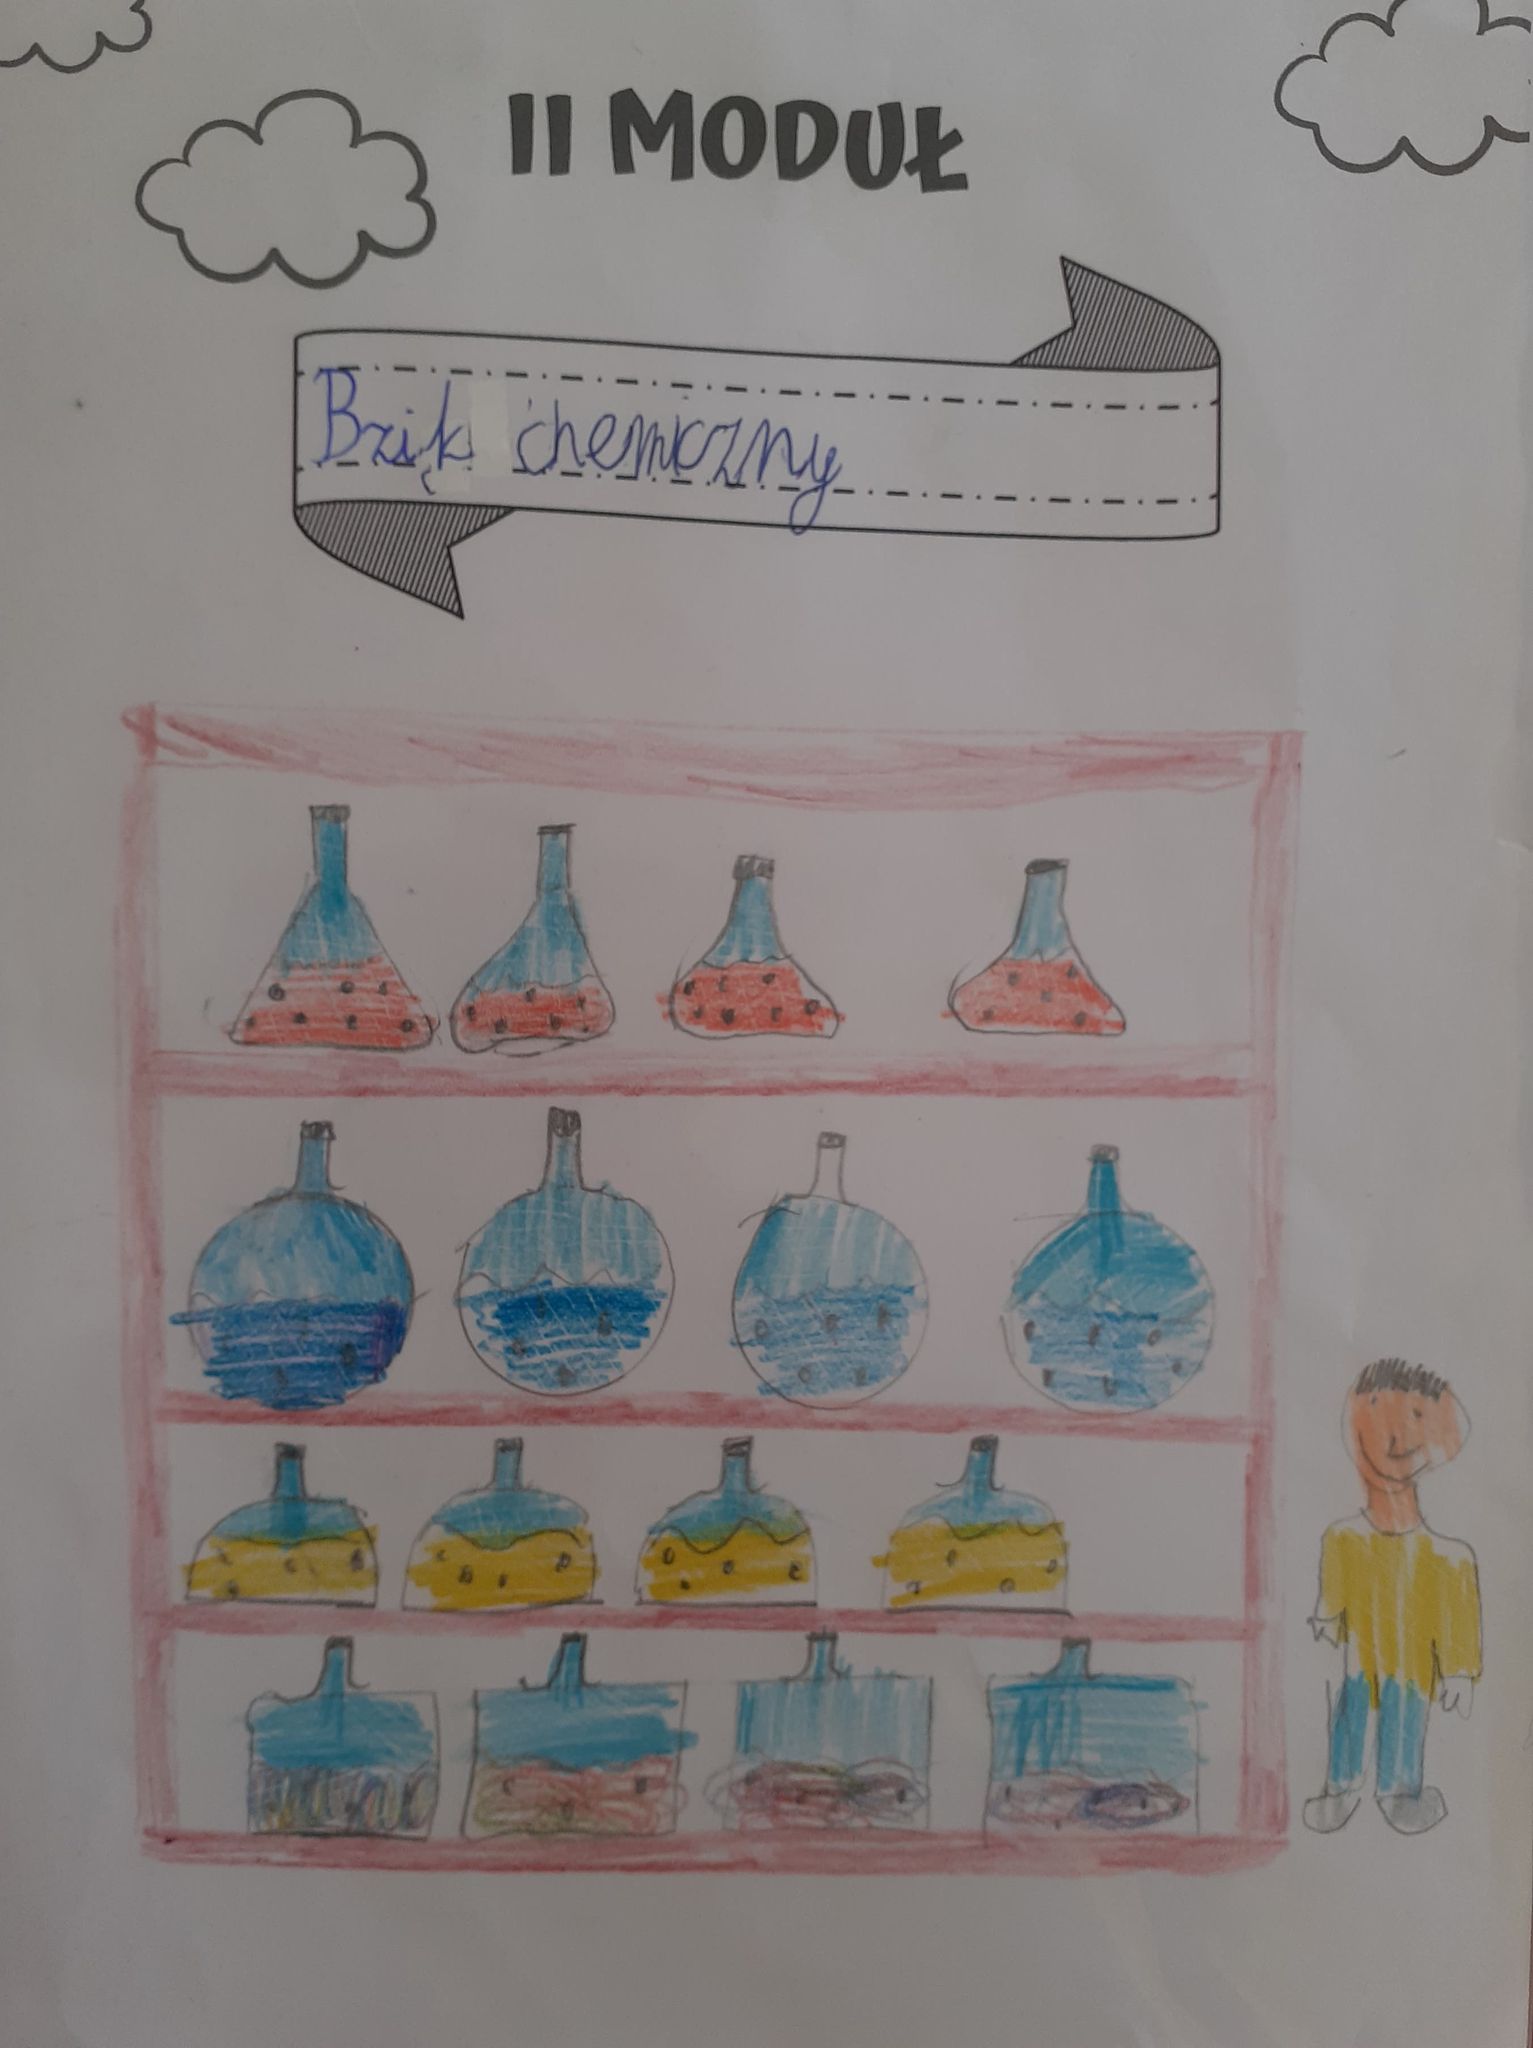 II MODUŁ
Bzik chemiczny